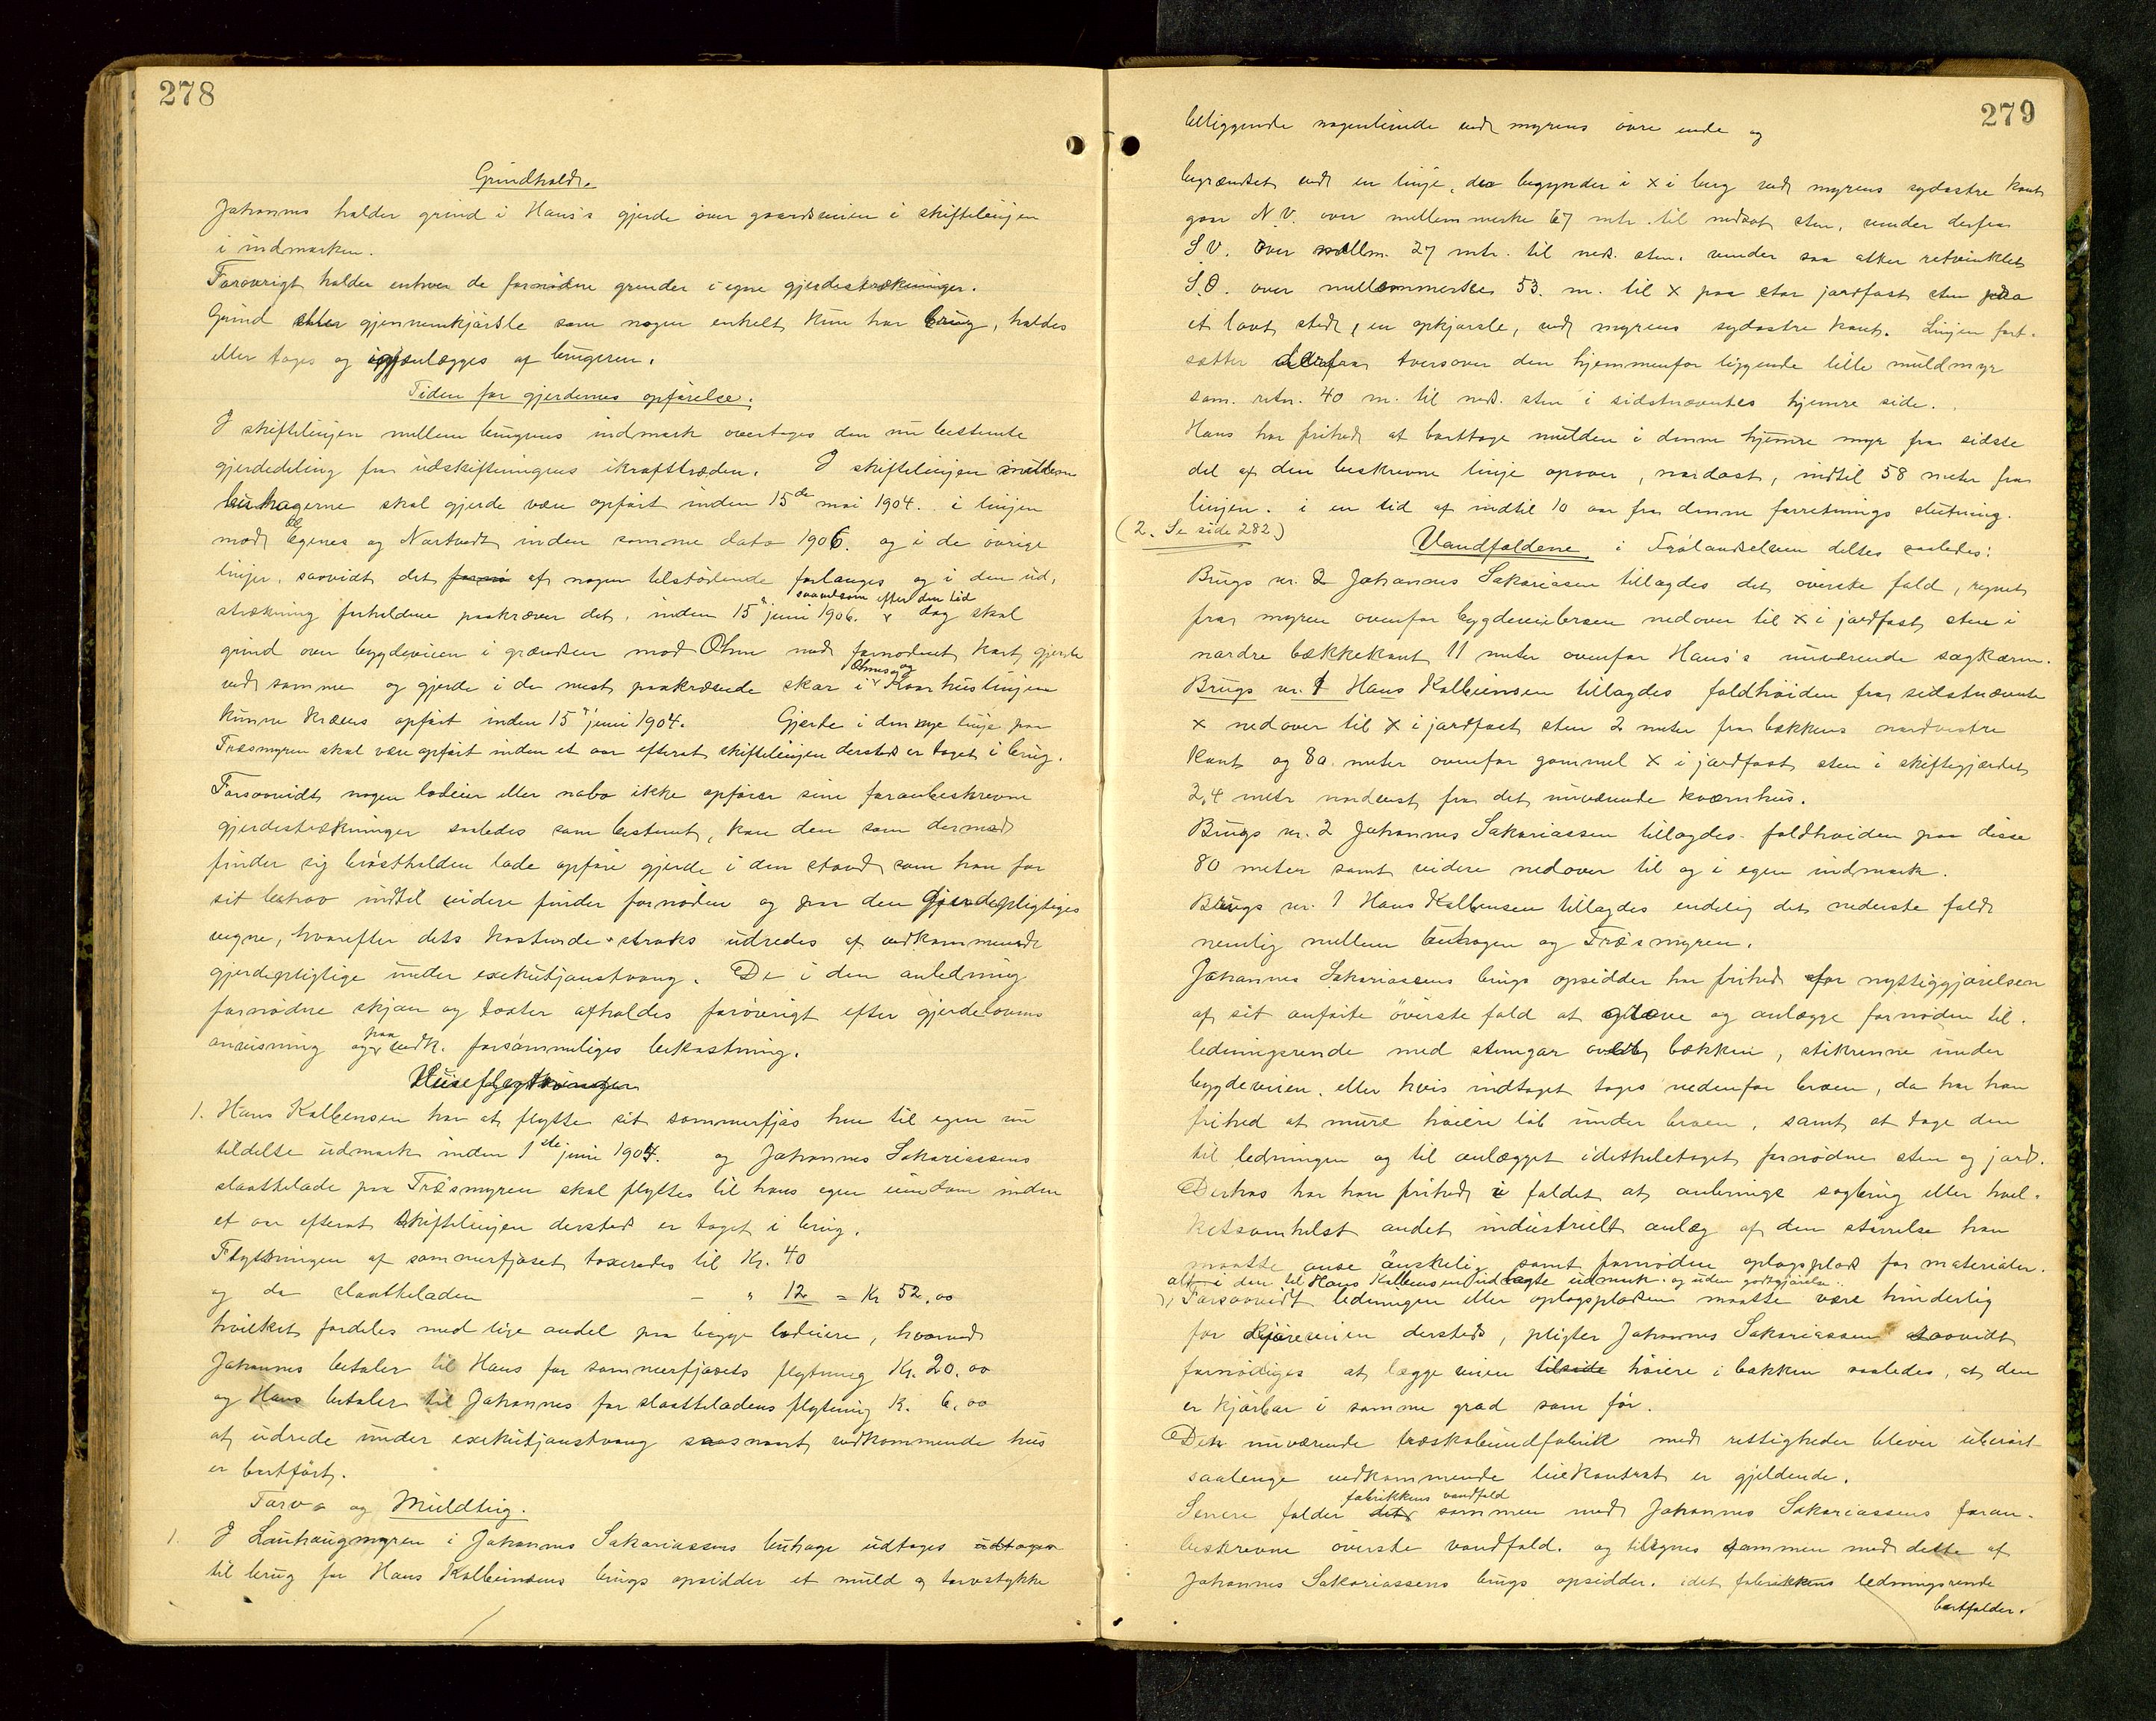 278
Grindhold.
Johannes holder grind i Hans's gjerde over gaardsveien i skiftelinjen
i indmarken.
Forøvrigt holder enhver de fornødne grinder i egne gjerdestrækninger.
Grind eller gjennemkjørsle som nogen enkelt kun har brug, holdes
eller tages og igjenlægges af brugeren.
Tiden for gjerdernes opførelse.
I skiftelinjen mellem brugenes indmark overtages den nu bestemte
gjerdedeling fra udskiftningens ikrafttræden. I skiftelinjen mellem
buhagerne skal gjerde være opført inden 15de mai 1904. i linjen
mod Egenes og Nortvedt inden samme dato 1906. og i de øvrige
linjer, saavidt det af nogen tilstødende forlanges og i den ud-
strækning forholdene paakræver det, inden 15 juni 1906. saavelsom efter den tid dog skal
grind over bygdeveien i grændsen mod Ohm med fornødent kort gjerde
ved samme og gjerde i de mest paakrævende skar i Ohms og Kaarhuslinjen
kunne kræves opført inden 15 juni 1904. Gjerde i den nye linje paa
Træsmyren skal være opført inden et aar efterat skiftelinjen dersteds er taget i brug.
Forsaavidt nogen lodeier eller nabo ikke opfører sine foranbeskrevne
gjerdestrækninger saaledes som bestemt, kan den som dermed
finder sig brøstholden lade opføre gjerde i den stand som han for
sit behov indtil videre finder fornøden og paa den gjerdepligtiges
vegne, hvorefter dets kostende straks udredes af vedkommende
gjerdepligtige under exekutjonstvang. De i den anledning
fornødne skjøn og taxter afholdes forøvrigt efter gjerdelovens
anvisning og paa vedk. forsømmeliges bekostning.
Huseflytninger
1. Hans Kolbensen har at flytte sit sommerfjøs hen til egen nu
tildelte udmark inden 1ste juni 1904. og Johannes Sakariassens
slaattelade paa Træsmyren skal flyttes til hans egen eiendom inden
et aar efterat skiftelinjen dersteds er taget i brug.
Flytningen af sommerfjøset taxeredes til Kr. 40
og do slaatteladen — " 12 = Kr 52,00
hvilket fordeles med lige andel paa begge lodeiere, hvorved
Johannes betaler til Hans for sommerfjøsets flytning Kr. 20,00
og Hans betaler til Johannes for slaatteladens flytning K. 6,00
at udrede under exekutjonstvang saasnart vedkommende hus
er bortført.
Torv- og Muldtrig.
1. I Lauhaugmyren i Johannes Sakariassens buhage udtages
til brug for Hans Kolbeinsens brugs opsidder et muld og torvstykke
279
beliggende nogenlunde ved myrens øvre ende og
begrændset ved en linje, der begynder i x i berg ved myrens sydøstre kant
gaar N.V. over mellemmerke 67 mtr. til nedsat sten, vender derfra
S.V. over mellm. 27 mtr. til neds. sten. vender saa atter retvinklet
S.Ø. over mellemmerke 53. m. til x paa stor jordfast sten paa
et lavt sted, en opkjørsle, ved myrens sydøstre kant. Linjen fort-
sætter derfra tversover den hjemmenfor liggende lille muldmyr
sam. retn. 40 m. til neds. sten i sidstnævntes hjemre side.
Hans har frihed at borttage mulden i denne hjemre myr fra sidste
del af den beskrevne linje opover, nordost, indtil 58 meter fra
linjen. i en tid af indtil 10 aar fra denne forretnings slutning.
(2. Se side 282)
Vandfaldene i Frølandselven deltes saaledes:
Brugs nr. 2 Johannes Sakariasen tillagdes det øverste fald, regnet
fra myren ovenfor bygdeveibroen nedover til x i jordfast sten i
nordre bækkekant 11 meter ovenfor Hans's nuværende sagkærn.
Brugs nr. 1 Hans Kolbeinsen tillagdes faldhøiden fra sidstnævnte
x nedover til x i jordfast sten 2 meter fra bækkens nordvestre
kant og 80. meter ovenfor gammel x i jordfast sten i skiftegjærdet
2,4 metr nordvest fra det nuværende kværnhus.
Brugs nr. 2 Johannes Sakariassen tillagdes faldhøiden paa disse
80 meter samt videre nedover til og i egen indmark.
Brugs nr. 1 Hans Kolbensen tillagdes endelig det nederste fald
nemlig mellem buhagen og Træsmyren.
Johannes Sakariassens brugs opsidder har frihed for nyttiggjørelsen
af sit anførte øverste fald at grave og anlægge fornøden til-
ledningsrende med stengar over bækken, stikrenne under
bygdeveien, eller hvis indtaget tages nedenfor broen, da har han
frihed at mure høiere løb under broen, samt at tage den
til ledningen og til anlægget idetheletaget fornødne sten og jord.
Derhos har han frihed i faldet at anbringe sagbrug eller hvil-
ketsomhelst andet industrielt anlæg af den størrelse han
maatte anse ønskelig samt fornøden oplagsplads for materialer.
alt i den til Hans Kolbensen udlagte udmark. og uden godtgjørelse.
Forsaavidt ledningen eller oplagspladsen maatte være hinderlig
for kjøreveien dersteds, pligter Johannes Sakariassen saavidt
fornødiges at lægge veien tilside høiere i bakken saaledes, at den
er kjørbar i samme grad som før.
Den nuværende træskobundfabrik med rettigheder bliver uberørt
saalænge vedkommende leiekontrakt er gjeldende.
Senere falder det fabrikkens vandfald sammen med Johannes Sakariassens foran-
beskrevne øverste vandfald. og tilegnes sammen med dette af
Johannes Sakariassens brugs opsidder. idet fabrikkens ledningsrende
bortfalder.